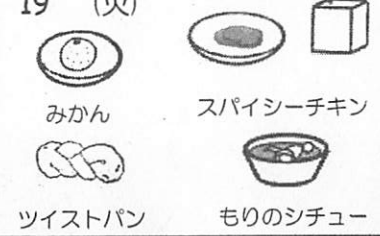 19 (火)
みかん
スパイシーチキン
ツイストパン
もりのシチュー